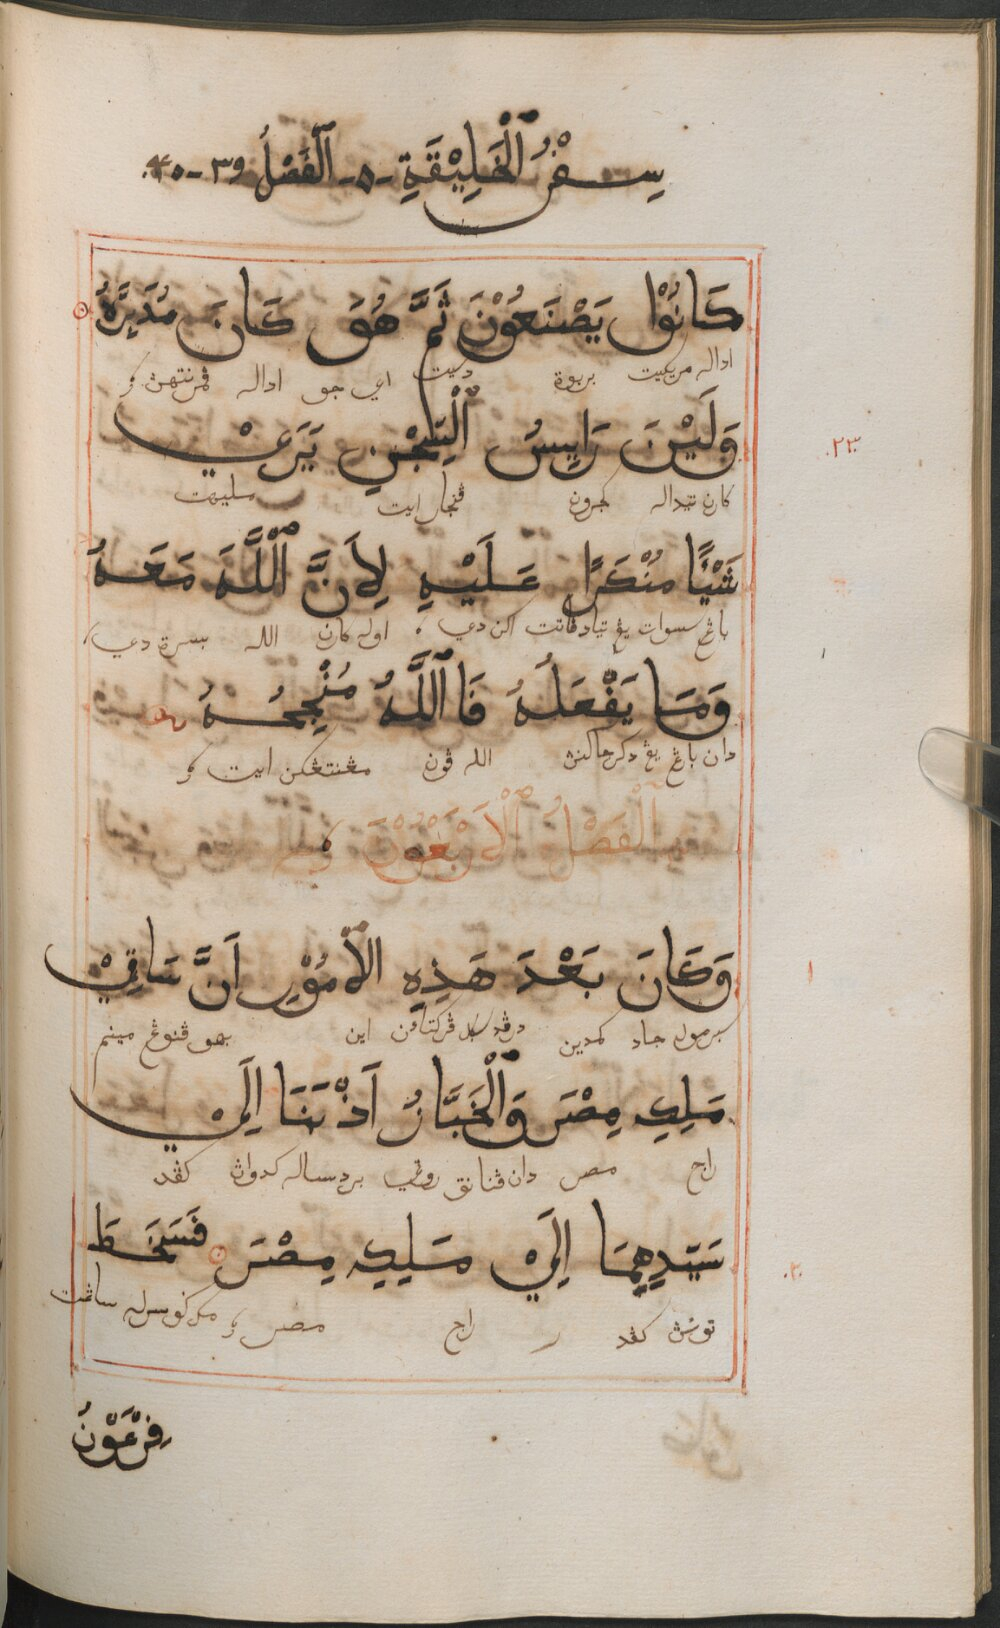 سِفْرُ ٱلْخَلِيْقَةِ - ٥ - ٱلْفَصْلُ ٣٩ - ٤٠
كَانُوْا يَصْنَعُوْنَ ثَمَّ هُوَ كَانَ مُدَبِّرَهُ
اداله مريكيت بربوة دسيت اي جو اداله ڤمرنتهن
وَلَيْسَ رَايِيسُ ٱلسِّجْنِ يَرَىٰ
كان تيداله ڤنجار ايت مليهت
٢٣
شَيْئًا مُنْكَرًا عَلَيْهِ لِأَنَّ ٱللَّهَ مَعَهُ
باڠ سسوات يڠ تياد ڤاتت اكن دي اوله كارن الله بسرة دي
وَمَا يَفْعَلُهُ فَاٱللَّهُ مُنْجِحُهُ
دان باڠ يڠ دكرجاكنڽ الله ڤون مڠنتڠكن ايت
ٱلْفَصْلُ ٱلْأَرْبَعُوْنَ
وَكَانَ بَعْدَ هَذِهِ ٱلْأُمُوْرِ اَنَّ سَاقِيْ
١
برموله جاد كمدين درڤد سݢل ڤركتاون اين بهو ڤنوڠ مينم
مَلِكِ مِصْرَ وَٱلْخَبَّازُ اَذْنَبَا اِلَىٰ
راج مصر دان ڤناڽق روتي بردساله كدواڽ كڤد
سَيِّدِهِمَا اِلَىٰ مَلِكِ مِصْرَ فَسَخَطَ
٢
توننڽ كڤد راج مصر مك ݢوسرله ساڠت
فِرْعَوْنُ